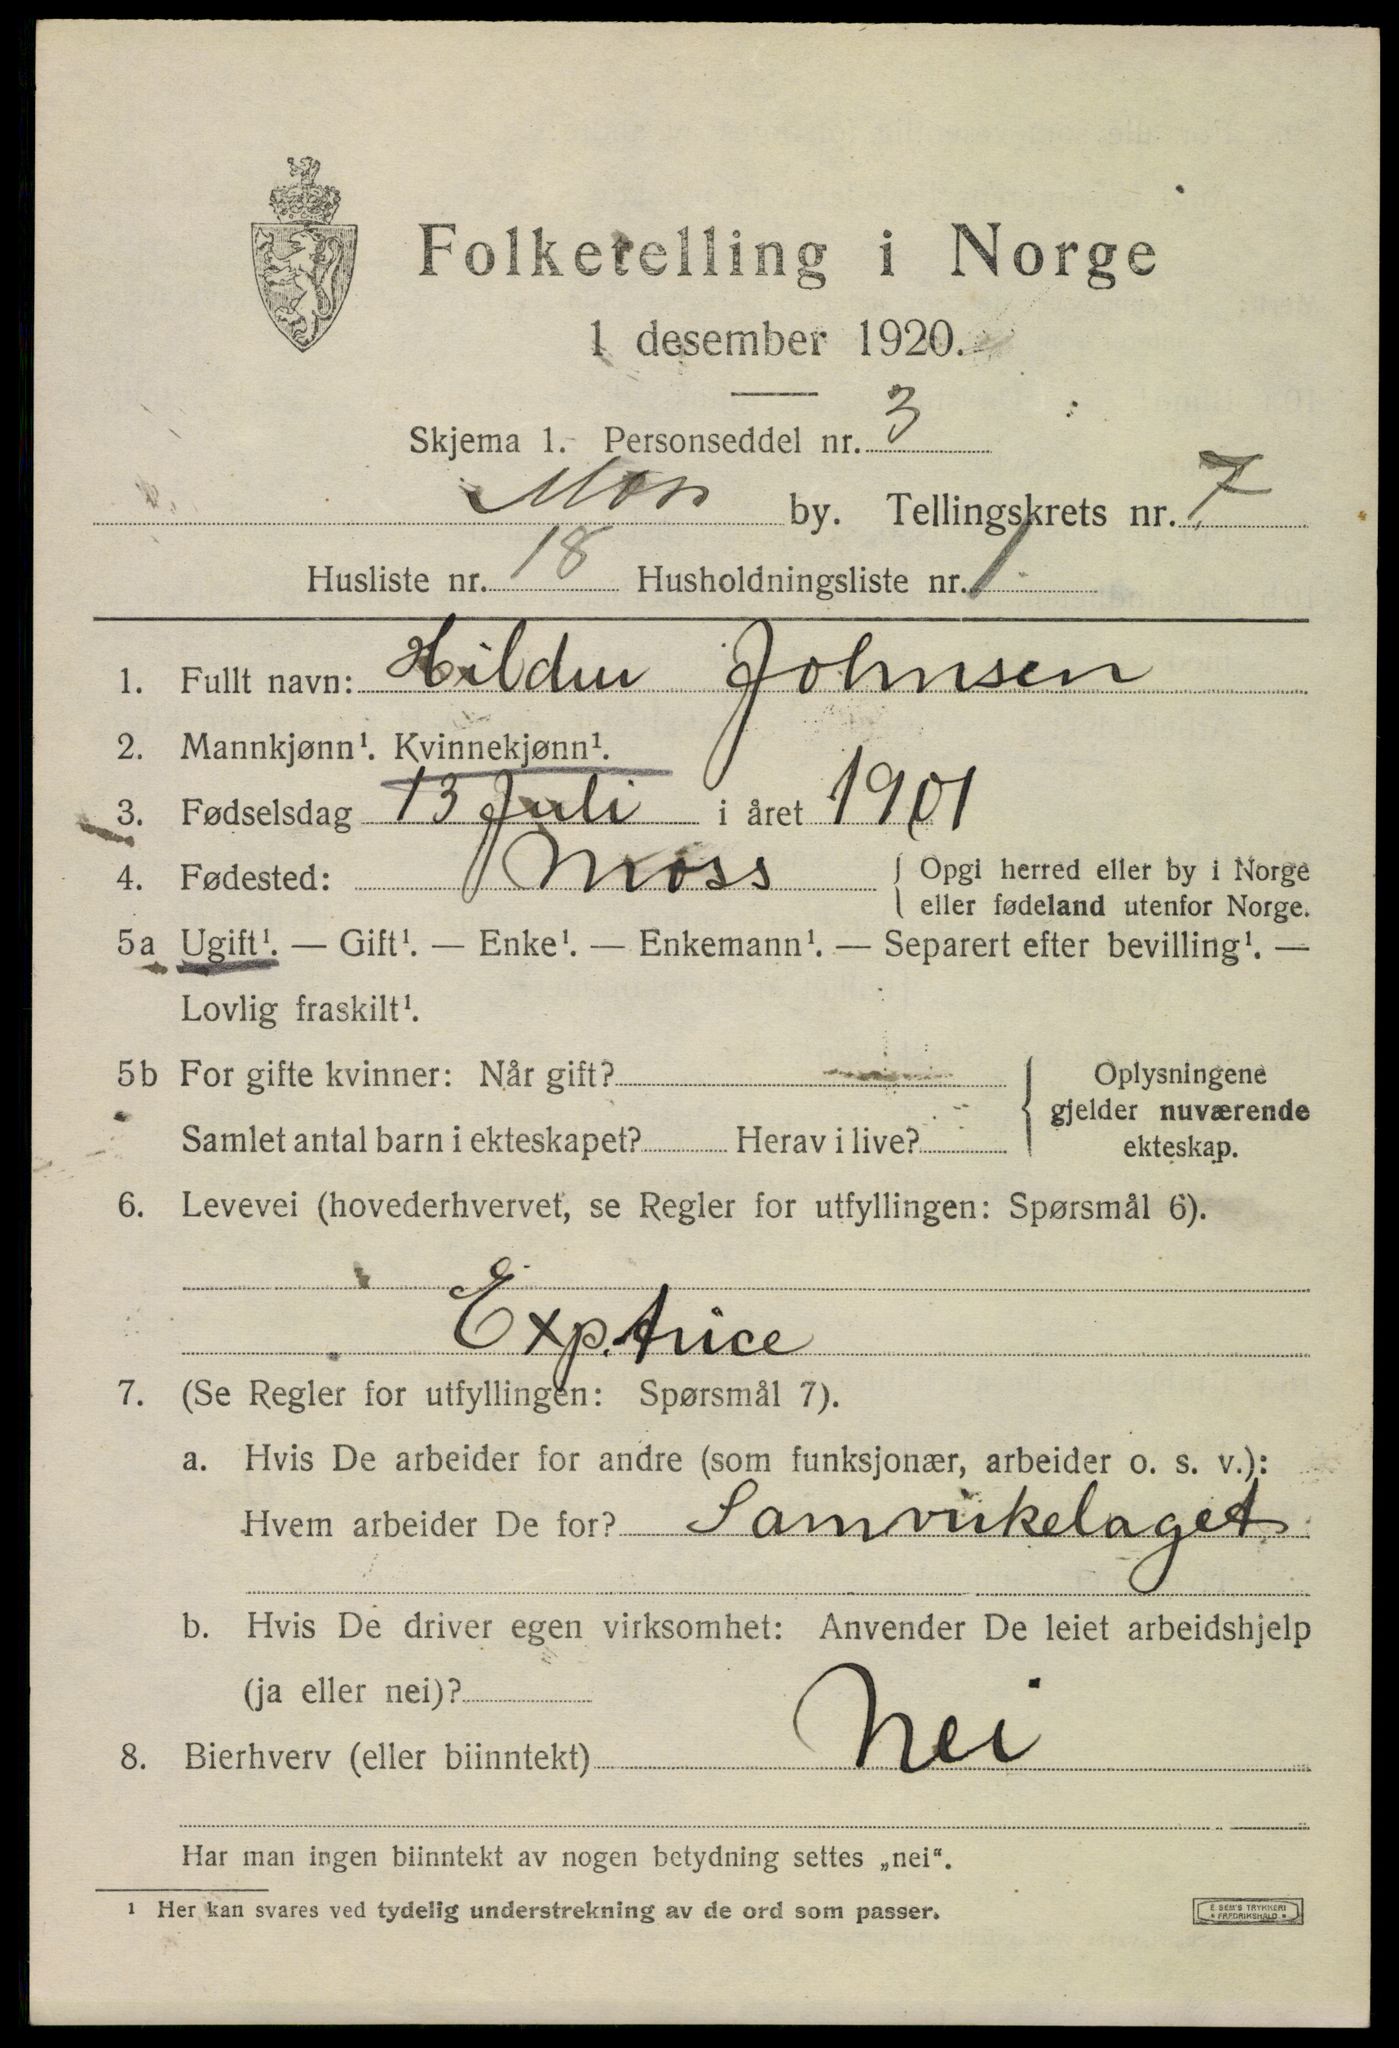 Folketelling i Norge
1 desember 1920.
Skjema 1. Personseddel nr. 3
Moss by. Tellingskrets nr. 7
Husliste nr. 18 Husholdningsliste nr. 1
1. Fullt navn: Hildur Johnsen
2. Mannkjønn¹. Kvinnekjønn¹.
3. Fødselsdag 13 Juli i året 1901
4. Fødested: Moss { Opgi herred eller by i Norge
eller fødeland utenfor Norge.
5a Ugift¹. — Gift¹. — Enke¹. — Enkemann¹. — Separert efter bevilling¹. —
Lovlig fraskilt¹.
5b For gifte kvinner: Når gift?
Samlet antal barn i ekteskapet? Herav i live?
Oplysningene
gjelder nuværende
ekteskap.
6. Levevei (hovederhvervet, se Regler for utfyllingen: Spørsmål 6).
Exp.trice
7. (Se Regler for utfyllingen: Spørsmål 7).
a. Hvis De arbeider for andre (som funksjonær, arbeider o. s. v.):
Hvem arbeider De for? Samvirkelaget
b. Hvis De driver egen virksomhet: Anvender De leiet arbeidshjelp
(ja eller nei)?
8. Bierhverv (eller biinntekt) Nei
Har man ingen biinntekt av nogen betydning settes „nei“.
¹ Her kan svares ved tydelig understrekning av de ord som passer.
E. SEM'S TRYKKERI
FREDRIKSHALD